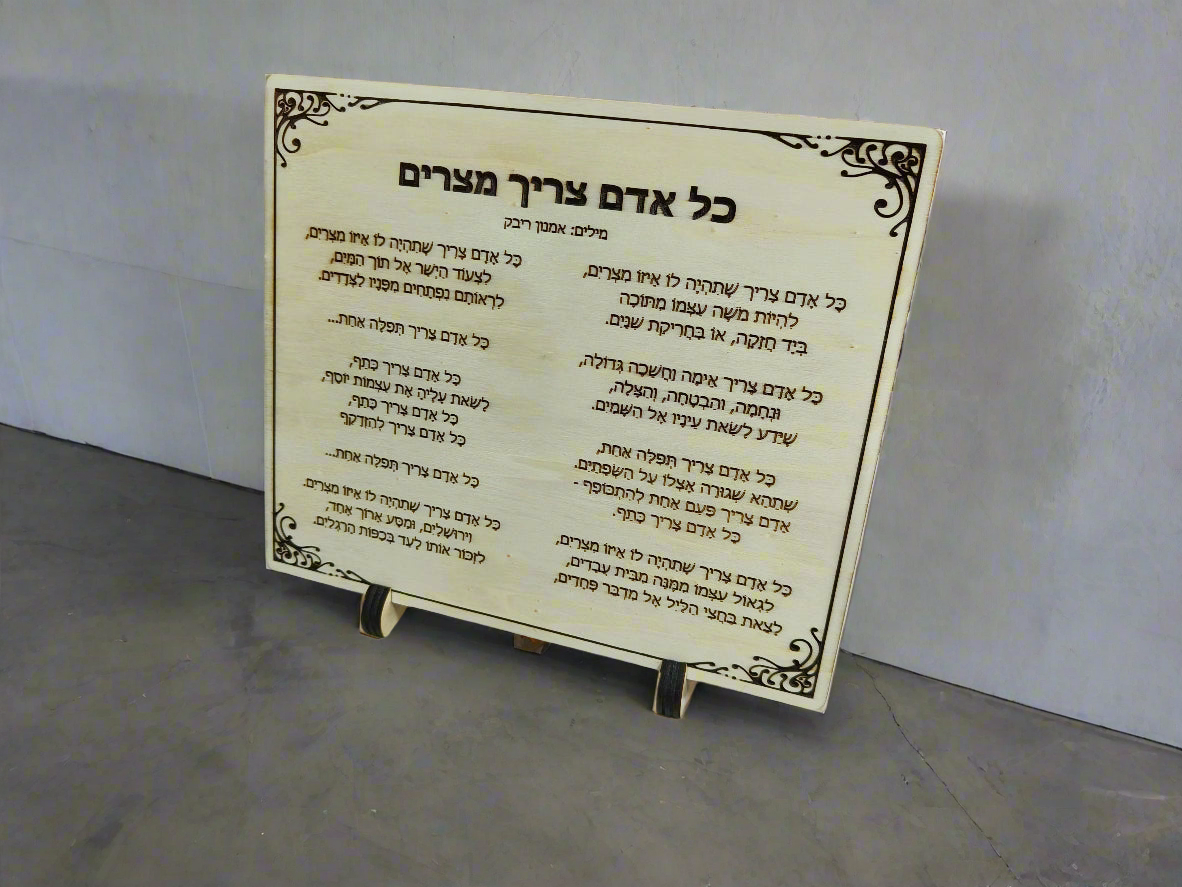 כל אדם צריך מצרים
מילים: אמנון ריבק
כָּל אָדָם צָרִיךְ שֶׁתִּהְיֶה לוֹ אֵיזוֹ מִצְרַיִם,
לִהְיוֹת מֹשֶׁה עַצְמוֹ מִתּוֹכָהּ
בְּיָד חֲזָקָה, אוֹ בַּחֲרִיקַת שִׁנַּיִם.
כָּל אָדָם צָרִיךְ אֵימָה וַחֲשֵׁכָה גְּדוֹלָה,
וְנֶחָמָה, וְהַבְטָחָה, וְהַצָּלָה,
שֶׁיֵּדַע לָשֵׂאת עֵינָיו אֶל הַשָּׁמַיִם.
כָּל אָדָם צָרִיךְ תְּפִלָּה אַחַת,
שֶׁתְּהֵא שְׁגוּרָה אֶצְלוֹ עַל הַשְּׂפָתַיִם.
אָדָם צָרִיךְ פַּעַם אַחַת לְהִתְכּוֹפֵף -
כָּל אָדָם צָרִיךְ כָּתֵף.
כָּל אָדָם צָרִיךְ שֶׁתִּהְיֶה לוֹ אֵיזוֹ מִצְרַיִם,
לִגְאוֹל עַצְמוֹ מִמֶּנָּה מִבֵּית עֲבָדִים,
לָצֵאת בַּחֲצִי הַלַּיִל אֶל מִדְבַּר פְּחָדִים,
כָּל אָדָם צָרִיךְ שֶׁתִּהְיֶה לוֹ אֵיזוֹ מִצְרַיִם,
לִצְעוֹד הַיְשֵׁר אֶל תּוֹךְ הַמַּיִם,
לִרְאוֹתָם נִפְתָּחִים מִפָּנָיו לַצְּדָדִים.
כָּל אָדָם צָרִיךְ תְּפִלָּה אַחַת...
כָּל אָדָם צָרִיךְ כָּתֵף,
לָשֵׂאת עָלֶיהָ אֶת עַצְמוֹת יוֹסֵף,
כָּל אָדָם צָרִיךְ כָּתֵף,
כָּל אָדָם צָרִיךְ לְהִזְדַּקֵּף
כָּל אָדָם צָרִיךְ תְּפִלָּה אַחַת...
כָּל אָדָם צָרִיךְ שֶׁתִּהְיֶה לוֹ אֵיזוֹ מִצְרַיִם.
וִירוּשָׁלַיִם, וּמַסָּע אָרוֹךְ אֶחָד,
לִזְכּוֹר אוֹתוֹ לָעַד בְּכַפּוֹת הָרַגְלַיִם.